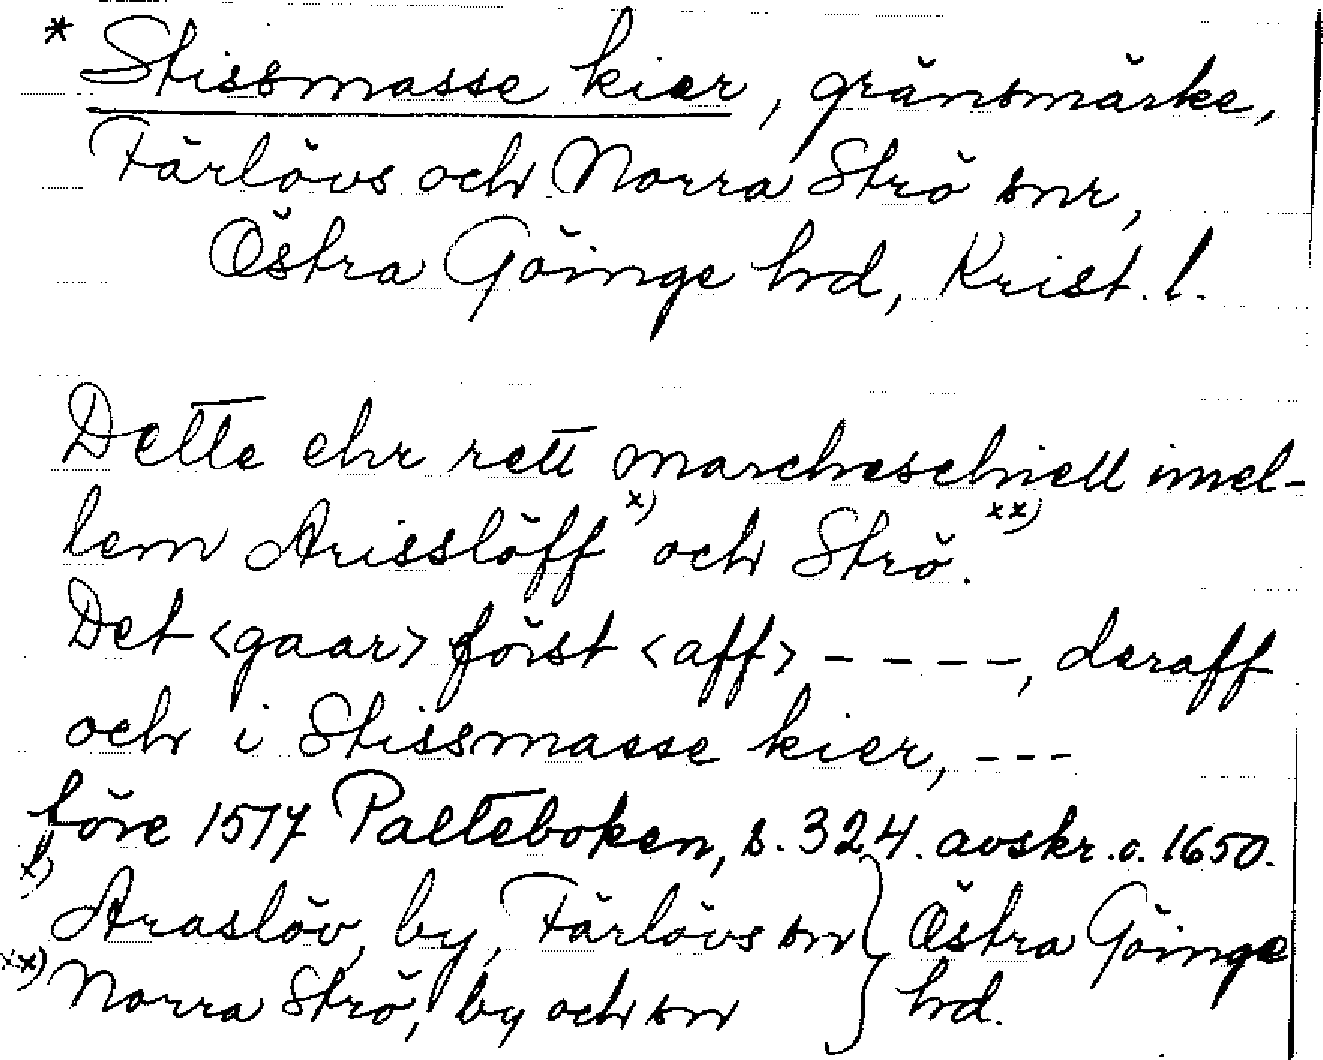 * Stissmasse kier, gränsmärke,
Färlövs och Norra Strö snr,
Östra Göinge hd, Krist. l.
Dette ehr rett marcheschiell imel-
lem Arisslöff x) och Strö. xx)
Det <gaar> först <aff> - - - -, deraff
och i Stissmasse kier, - - -
före 1517 Palteboken, s. 324. avskr. o. 1650.
x) Araslöv, by, Färlövs sn } Östra Göinge
xx) Norra Strö, by och sn } hd.